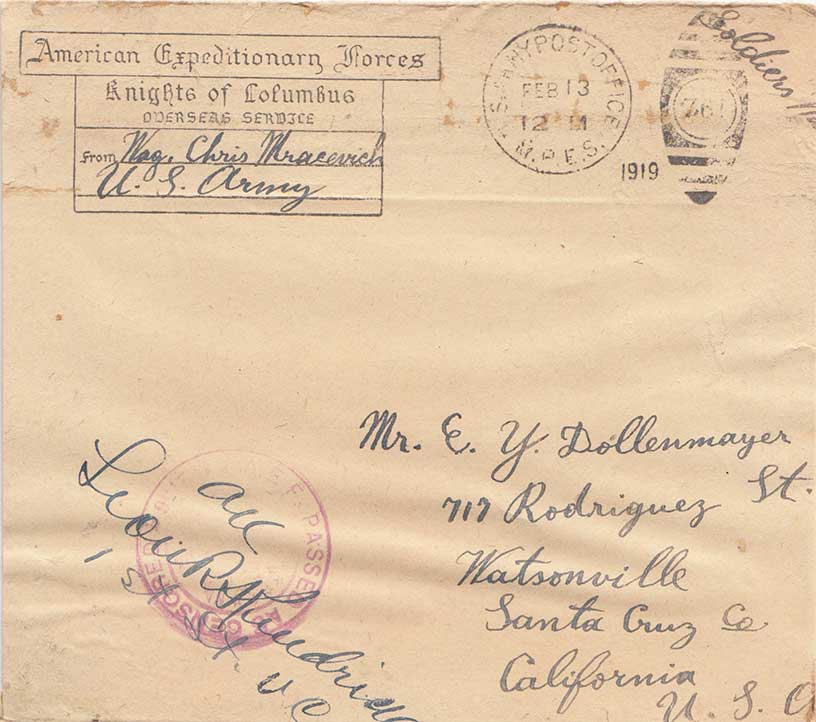 American Expeditionary Forces
Knights of Columbus
OVERSEAS SERVICE
From Wag. Chris Mracevich
U. S. Army
U.S. ARMY POST OFFICE
FEB 13
12 M
M.P.E.S.
1919
762
Soldiers
Mr. E. Y. Dollenmayer
717 Rodriguez St.
Watsonville
Santa Cruz Co
California
U. S. A
PASSED
CENSORED
OK
1st Lt.